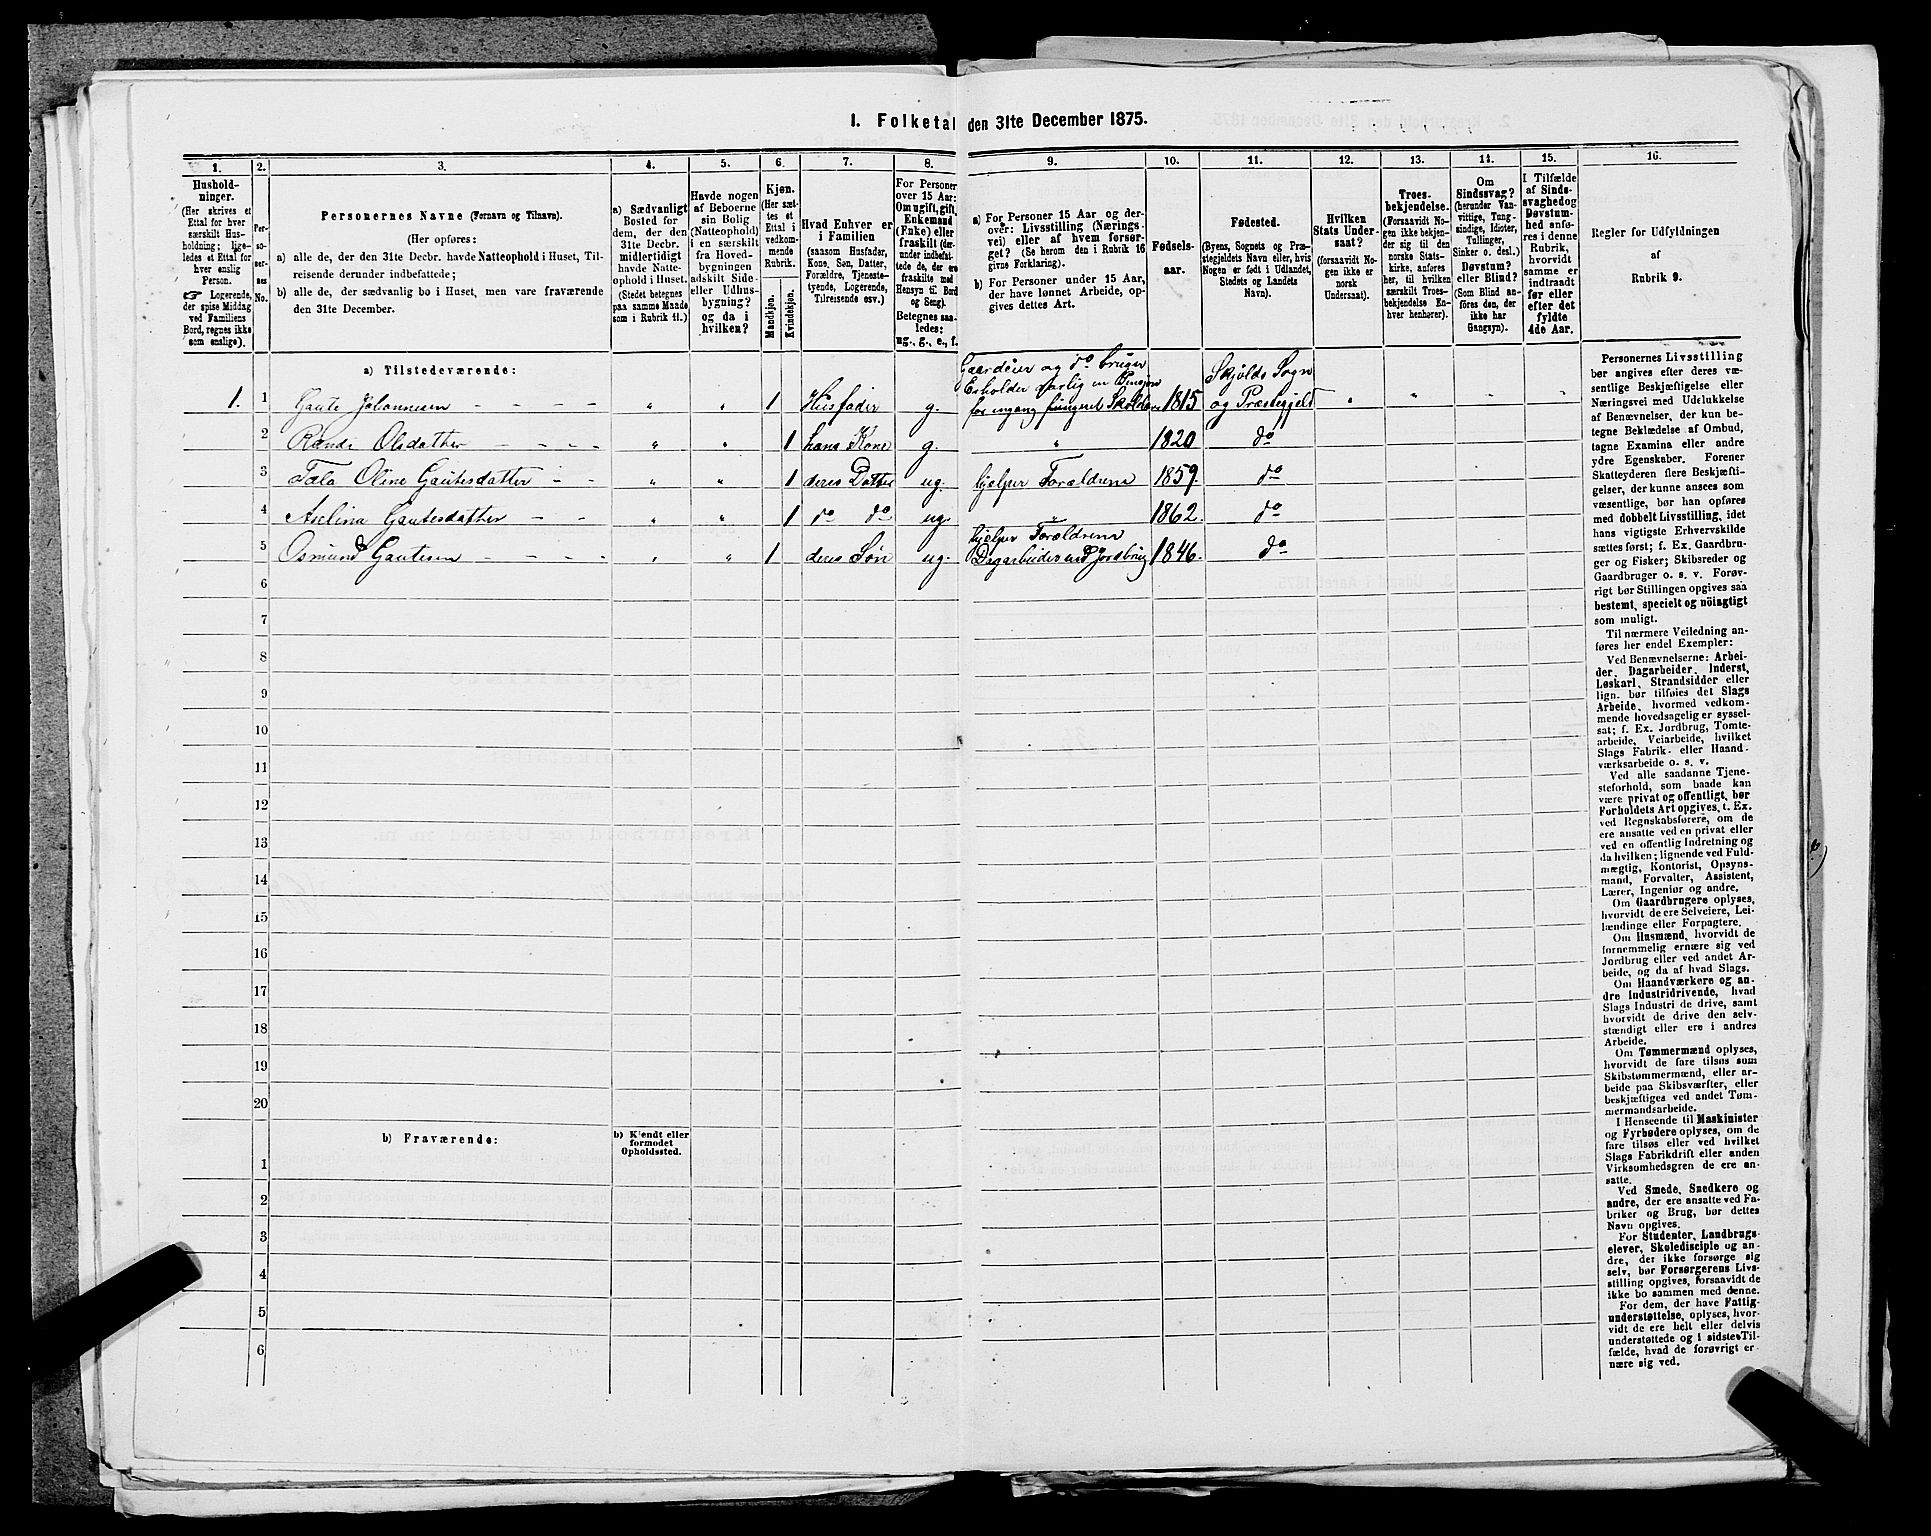 1. Folketal den 31te December 1875.
1. 2. 3. 4. 5. 6. 7. 8. 9. 10. 11. 12. 13. 14. 15. 16.
Hushold-
ninger.
(Her skrives et
Ettal for hver
særskilt Hus-
holdning; lige-
ledes et Ettal for
hver enslig
Person.
☞ Logerende,
der spise Middag
ved Familiens
Bord, regnes ikke
som enslige).
Per-
so-
ner-
nes
No.
Personernes Navne (Fornavn og Tilnavn).
(Her opføres:
a) alle de, der den 31te Decbr. havde Natteophold i Huset, Til-
reisende derunder indbefattede;
b) alle de, der sædvanlig bo i Huset, men vare fraværende
den 31te December.
a) Sædvanligt
Bosted for
dem, der den
31te Decbr.
midlertidigt
havde Natte-
ophold i Huset.
(Stedet betegnes
paa samme Maade
som i Rubrik 11.)
Havde nogen
af Beboerne
sin Bolig
(Natteophold)
i en særskilt
fra Hoved-
bygningen
adskilt Side
eller Udhus-
bygning?
og da i
hvilken?
Kjøn.
(Her sæt-
tes et
Ettal i
vedkom-
mende
Rubrik.
Mandkjøn.
Kvindekjøn.
Hvad Enhver er
i Familien
(saasom Husfader,
Kone, Søn, Datter,
Forældre, Tjeneste-
tyende, Logerende,
Tilreisende osv.)
For Personer
over 15 Aar:
Om ugift, gift,
Enkemand
(Enke) eller
fraskilt (der-
under indbefat-
tede de, der ere
fraskilte med
Hensyn til Bord
og Seng).
Betegnes saa-
ledes:
ug., g., e., f.
a) For Personer 15 Aar og der-
over: Livsstilling (Nærings-
vei) eller af hvem forsør-
get? (Se herom den i Rubrik 16
givne Forklaring).
b) For Personer under 15 Aar,
der have lønnet Arbeide, op-
gives dettes Art.
Fødsels-
aar.
Fødested.
(Byens, Sognets og Præ-
stegjeldets Navn eller, hvis
Nogen er født i Udlandet,
Stedets og Landets
Navn).
Hvilken
Stats Under-
saat?
(forsaavidt No-
gen ikke er
norsk
Undersaat).
Troes-
bekjendelse.
(Forsaavidt No-
gen ikke bekjen-
der sig til den
norske Stats-
kirke, anføres
her, til hvilken
særskilt Troes-
bekjendelse En-
hver henhører).
Om
Sindssvag?
(herunder Van-
vittige, Tung-
sindige, Idioter,
Tullinger,
Sinker o. desl.)
Døvstum?
eller Blind?
(Som Blind an-
føres den, der
ikke har
Gangsyn).
I Tilfælde
af Sinds-
svaghed og
Døvstum-
hed anfø-
res i denne
Rubrik,
hvorvidt
samme er
indtraadt
før eller
efter det
fyldte
4de Aar.
Regler for Udfyldningen
af
Rubrik 9.
a) Tilstedeværende:
Gaardeier og do bruger
1. 1 Gaute Johannesen " " 1 Husfader g. 1815 Skjolds Sogn og Præstegjeld " " " "
2 Randi Olsdatter " " 1 hans Kone g. " 1820 do
3 Tala Oline Gautesdatter " " 1 deres Datter ug. hjelper Forældrene 1859. do
4 Aselina Gautesdatter " " 1 do do ug. " 1862. do
hjelper Forældrene
5 Osmund Gautesen " " 1 deres Søn ug. Dagarbeider ved Jordbrug 1846. do
6
7
8
9
10
11
12
13
14
15
16
17
18
19
20
b) Fraværende:
b) Kjendt eller
formodet
Opholdssted.
1
2
3
4
5
6
Personernes Livsstilling
bør angives efter deres væ-
sentlige Beskjæftigelse eller
Næringsvei med Udelukkelse
af Benævnelser, der kun be-
tegne Beklædelse af Ombud,
tagne Examina eller andre
ydre Egenskaber. Forener
Skatteyderen flere Beskjæfti-
gelser, der kunne ansees som
væsentlige, bør han opføres
med dobbelt Livsstilling, idet
hans vigtigste Erhvervskilde
sættes først; f. Ex. Gaardbru-
ger og Fisker; Skibsreder og
Gaardbruger o. s. v. Forøv-
rigt bør Stillingen opgives saa
bestemt, specielt og nöiagtigt
som muligt.
Til nærmere Veiledning an-
føres her endel Exempler:
Ved Benævnelserne: Arbei-
der, Dagarbeider, Inderst,
Løskarl, Strandsidder eller
lign. bør tilføies det Slags
Arbeide, hvormed vedkom-
mende hovedsagelig er syssel-
sat; f. Ex. Jordbrug, Tomte-
arbeide, Veiarbeide, hvilket
Slags Fabrik- eller Haand-
værksarbeide o. s. v.
Ved alle saadanne Tjene-
steforhold, som baade kan
være privat og offentligt, bør
Forholdets Art opgives, t. Ex.
ved Regnskabsførere, om de
ere ansatte ved en privat eller
ved en offentlig Indretning og
da hvilken; lignende ved Fuld-
mægtig, Kontorist, Opsyns-
mand, Forvalter, Assistent,
Lærer, Ingeniør og andre.
Om Gaardbrugere oplyses,
hvorvidt de ere Selveiere, Lei-
lændinge eller Forpagtere.
Om Husmænd, hvorvidt de
fornemmelig ernære sig ved
Jordbrug eller ved andet Ar-
beide, og da af hvad Slags.
Om Haandværkere og an-
dre Industridrivende, hvad
Slags Industri de drive, samt
hvorvidt de drive den selv-
stændigt eller ere i andres
Arbeide.
Om Tømmermænd oplyses,
hvorvidt de fare tilsøs som
Skibstømmermænd, eller ar-
beide paa Skibsværfter, eller
beskjæftiges ved andet Tøm-
mermandsarbeide.
I Henseende til Maskinister
og Fyrbødere oplyses, om de
fare tilsøs eller ved hvilket
Slags Fabrikdrift eller anden
Virksomhedsgren de ere an-
satte.
Ved Smede, Snedkere og
andre, der ere ansatte ved Fa-
briker og Brug, bør dettes
Navn opgives.
For Studenter, Landbrugs-
elever, Skoledisciple og an-
dre, der ikke forsørge sig
selv, bør Forsørgerens Livs-
stilling opgives, forsaavidt de
ikke bo sammen med denne.
For dem, der have Fattig-
understøttelse, oplyses, hvor-
vidt de ere helt eller delvis
understøttede og i sidste Til-
fælde, hvad de forøvrigt er-
nære sig ved.